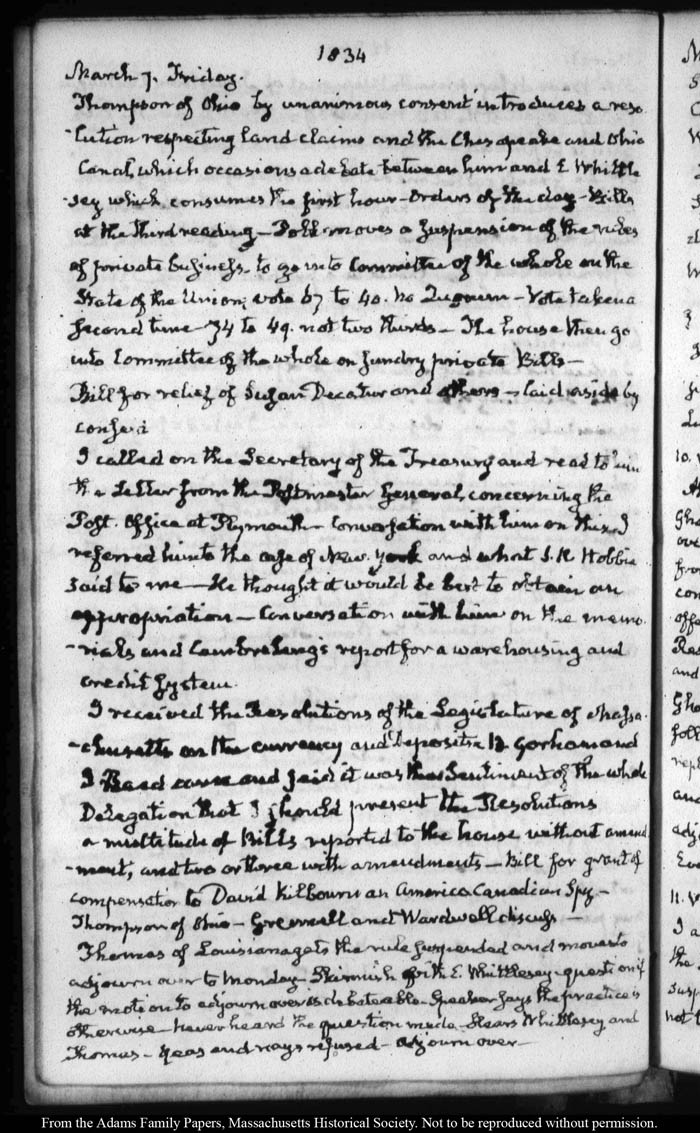 1834
March 7. Friday.
Thompson of Ohio by unanimous consent introduces a reso
-lution respecting Land claims and the Chesapeake and Ohio
Canal, which occasions a debate between him and E Whittle
-sey which consumes the first hour - Orders of the day - Bills
at the third reading - Polk moves a suspension of the rules
of private business, to go into Committee of the whole on the
State of the Union, vote 67 to 40. no Quorum - Vote taken a
second time 74 to 49. not two thirds - The house then go
into Committee of the whole on sundry private Bills -
Bill for relief of Susan Decatur and others - laid aside by
consent
I called on the Secretary of the Treasury and read to him
the Letter from the Postmaster General, concerning the
Post. Office at Plymouth - Conversation with him on this. I
referred him to the case of New. York and what S. R Hobbie
said to me - He thought it would be best to obtain an
appropriation - Conversation with him on the memo.
-rials and Cambreleng's report for a warehousing and
credit system.
I received the Resolutions of the Legislature of Massa.
-chusetts on the currency and Deposits. B Gorham and
J Reed came and said it was the sentiment of the whole
Delegation that I should present the Resolutions
a multitude of Bills reported to the house without amend
-ment, and two or three with amendments - Bill for grant of
compensation to David Kilbourn an America Canadian Spy -
Thompson of Ohio - Grennell and Wardwell discuss -
Thomas of Louisiana gets the rule suspended and moves to
adjourn over to Monday - Skirmish with E. Whittlesey - question if
the motion to adjourn over is debateable - Speaker says the practice is
otherwise - never heard the question made - Hears Whittlesey and
Thomas - Yeas and nays refused - adjourn over -
From the Adams Family Papers, Massachusetts Historical Society. Not to be reproduced without permission.